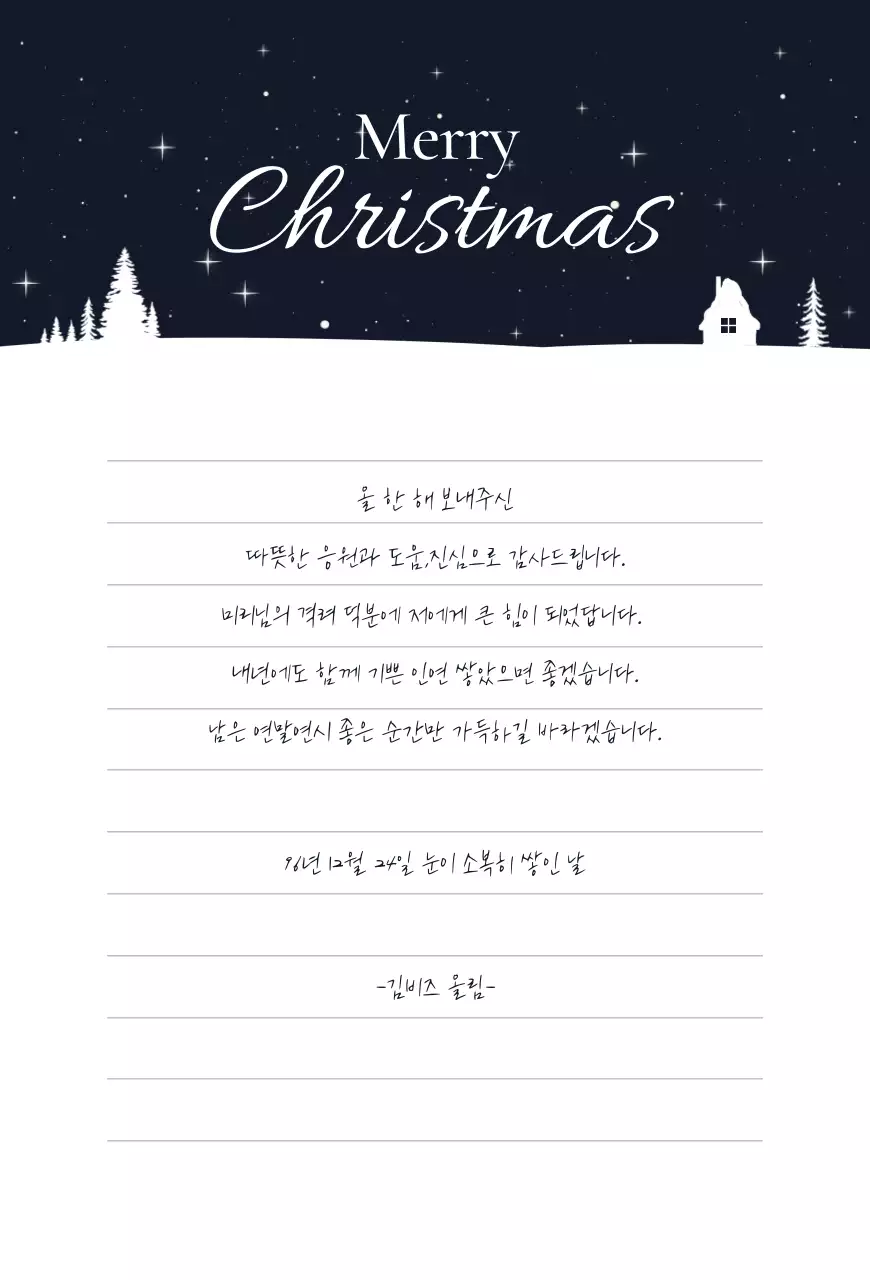 Merry
Christmas
올 한 해 보내주신
따뜻한 응원과 도움,진심으로 감사드립니다.
미리님의 격려 덕분에 저에게 큰 힘이 되었답니다.
내년에도 함께 기쁜 인연 쌓았으면 좋겠습니다.
남은 연말연시 좋은 순간만 가득하길 바라겠습니다.
96년 12월 24일 눈이 소복히 쌓인 날
-김비즈 올림-